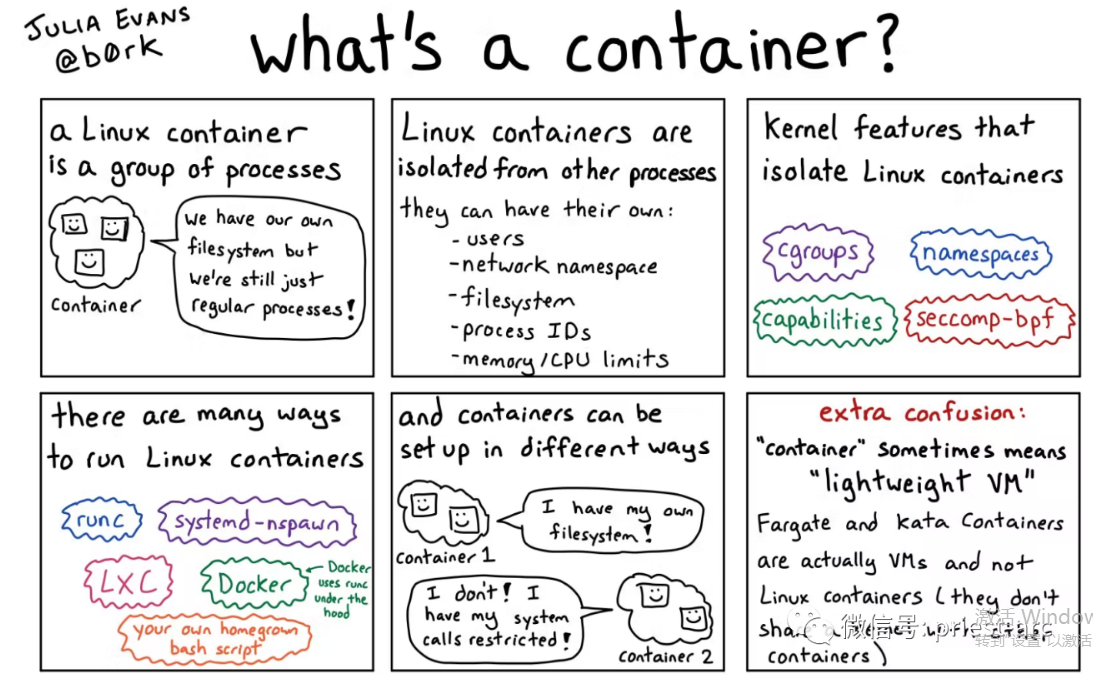 JULIA EVANS
@b0rk
what's a container?
a Linux container
is a group of processes
we have our own
filesystem but
we're still just
regular processes!
container
Linux containers are
isolated from other processes
they can have their own:
- users
- network namespace
- filesystem
- process IDs
- memory/CPU limits
Kernel features that
isolate Linux containers
cgroups
namespaces
capabilities
seccomp-bpf
there are many ways
to run Linux containers
runc
systemd-nspawn
LXC
Docker
← Docker
uses runc
under the
hood
your own homegrown
bash script
and containers can be
set up in different ways
I have my own
filesystem!
container 1
I don't! I
have my system
calls restricted!
container 2
extra confusion:
"container" sometimes means
"lightweight VM"
Fargate and Kata Containers
are actually VMs and not
Linux containers (they don't
share a
containers)
微信号:
激活 Window
转到"设置"以激活